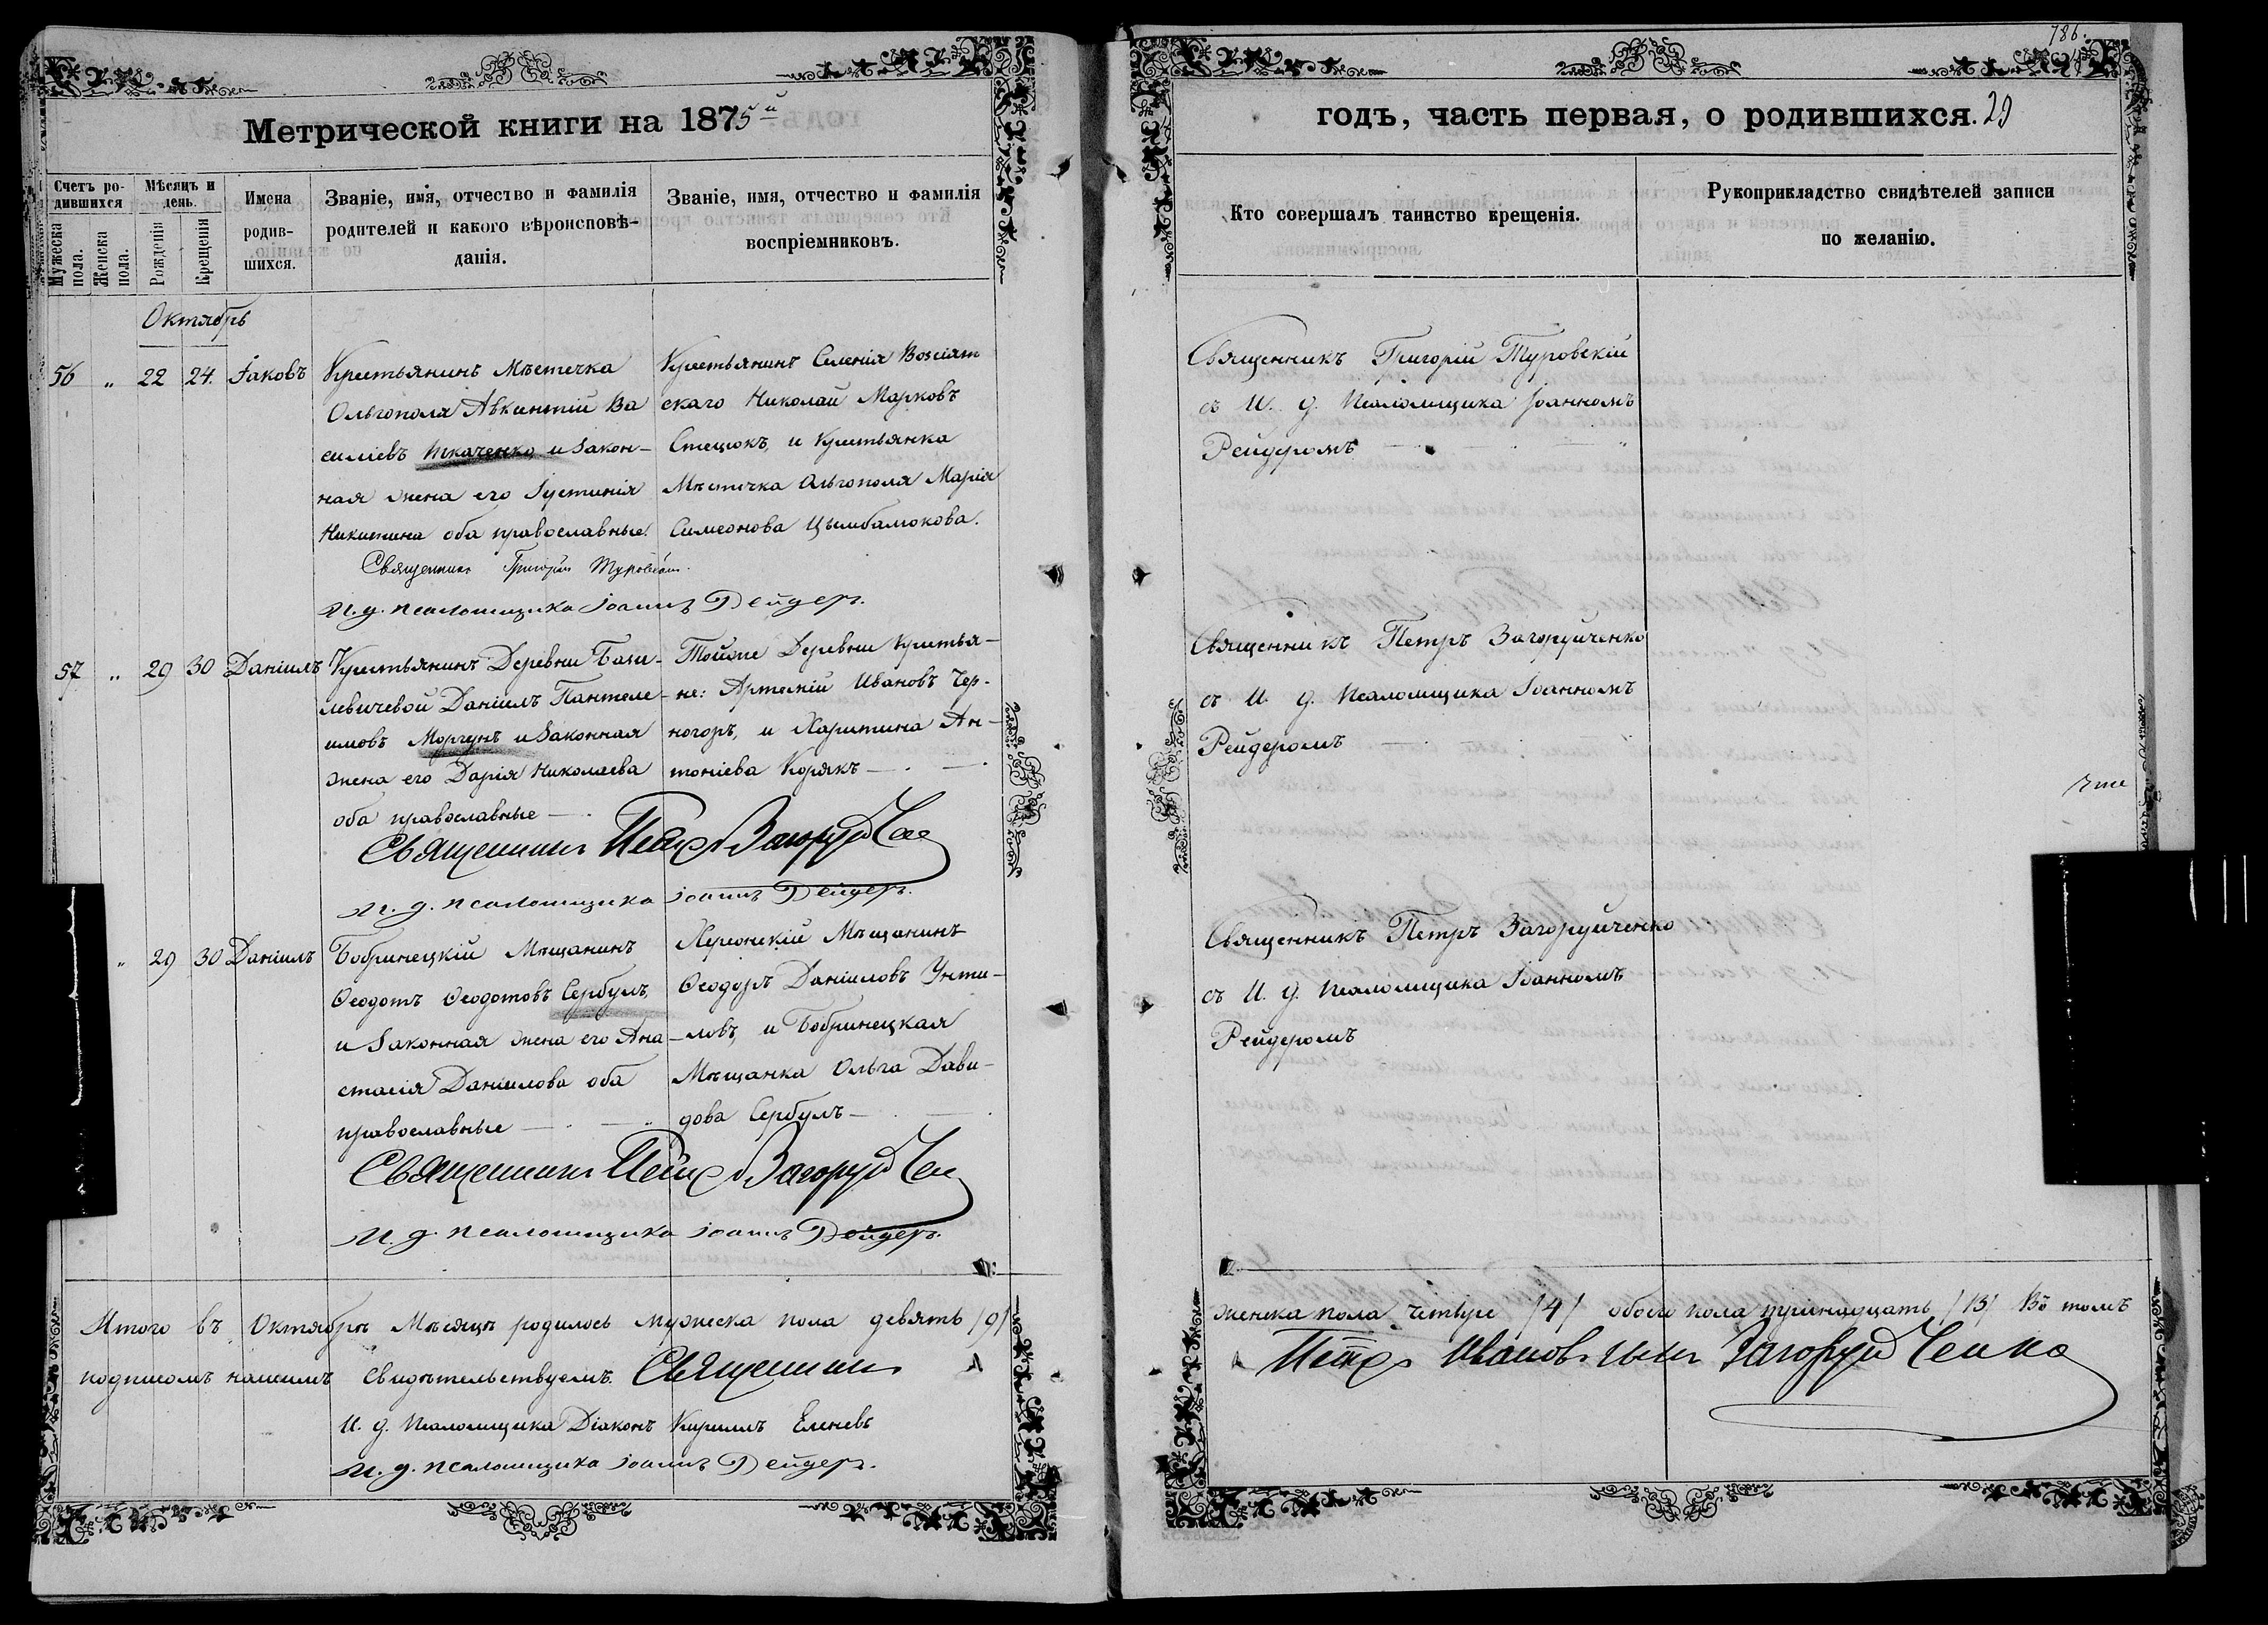 Метрической книги на 1875й
Счетъ ро-
дившихся
Мужеска
пола.
Женска
пола.
Мѣсяцъ и
день.
Рожденія
Крещенія
Имена
родив-
шихся.
Званіе, имя, отчество и фамилія
родителей и какого вѣроисповѣ-
данія.
Званіе, имя, отчество и фамилія
воспріемниковъ.
Октябрь
56 " 22 24. Іаковъ
Крестьянинъ Мѣстечка
Ольгополя Авксентій Ва
силіевъ Ткаченко и Закон-
ная жена его Іустинія
Никитина оба православные.
Крестьянинъ Селенія Возсіят
скаго Николай Марковъ
Стецюкъ, и Крестьянка
Мѣстечка Ольгополя Марія
Симеонова Цымбалюкова.
Священникъ Григорій Туровскій.
И. д. псаломщика Іоаннъ Рейдеръ.
57 " 29 30 Даніилъ
Крестьянинъ Деревни Бази-
левичевой Даніилъ Пантеле-
имовъ Моргунъ и Законная
жена его Дарія Николаева
оба православные
Тойже Деревни Крестья-
не: Артемій Ивановъ Чер-
ногоръ, и Харитина Ан-
тоніева Корякъ
Священникъ Петръ Загоруйче
И. д. псаломщика Іоаннъ Рейдеръ.
" 29 30 Даніилъ
Бобринецкій Мѣщанинъ
Ѳеодотъ Ѳеодотовъ Сербулъ,
и Законная жена его Ана-
стасія Даніилова оба
православные
Херсонскій Мѣщанинъ
Ѳеодоръ Даніиловъ Унти-
ловъ, и Бобринецкая
Мѣщанка Ольга Дави-
дова Сербулъ
Священникъ Петръ Загоруйче
И. д. псаломщика Іоаннъ Рейдеръ.
Итого въ Октябрѣ Мѣсяцѣ родилось мужеска пола девять /9/
подписомъ нашимъ свидѣтельствуемъ. Священникъ
И. д. Псаломщика Діаконъ Кириллъ Еленевъ
И. д. псаломщика Іоаннъ Рейдеръ.
786.
годъ, часть первая, о родившихся. 29
Кто совершалъ таинство крещенія.
Рукоприкладство свидѣтелей записи
по желанію.
Священникъ Григорій Туровскій
съ И. д. Псаломщика Іоанномъ
Рейдеромъ
Священникъ Петръ Загоруйченко
съ И. д. Псаломщика Іоанномъ
Рейдеромъ
Священникъ Петръ Загоруйченко
съ И. д. Псаломщика Іоанномъ
Рейдеромъ
женска пола четыре /4/ обоего пола тринадцать /13/ Въ томъ
Петръ Ивановъ сынъ Загоруйченко